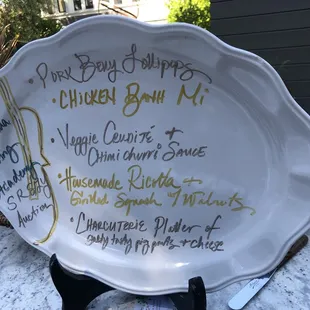 • PORK Belly Lollipops
• CHICKEN BANH Mi
• Veggie Crudité +
Chimichurri SAUCE
• Housemade Ricotta +
Grilled Squash w/ Walnuts
• CHARCUTERIE Platter of
tasty pig parts + cheese
Academy
Auction